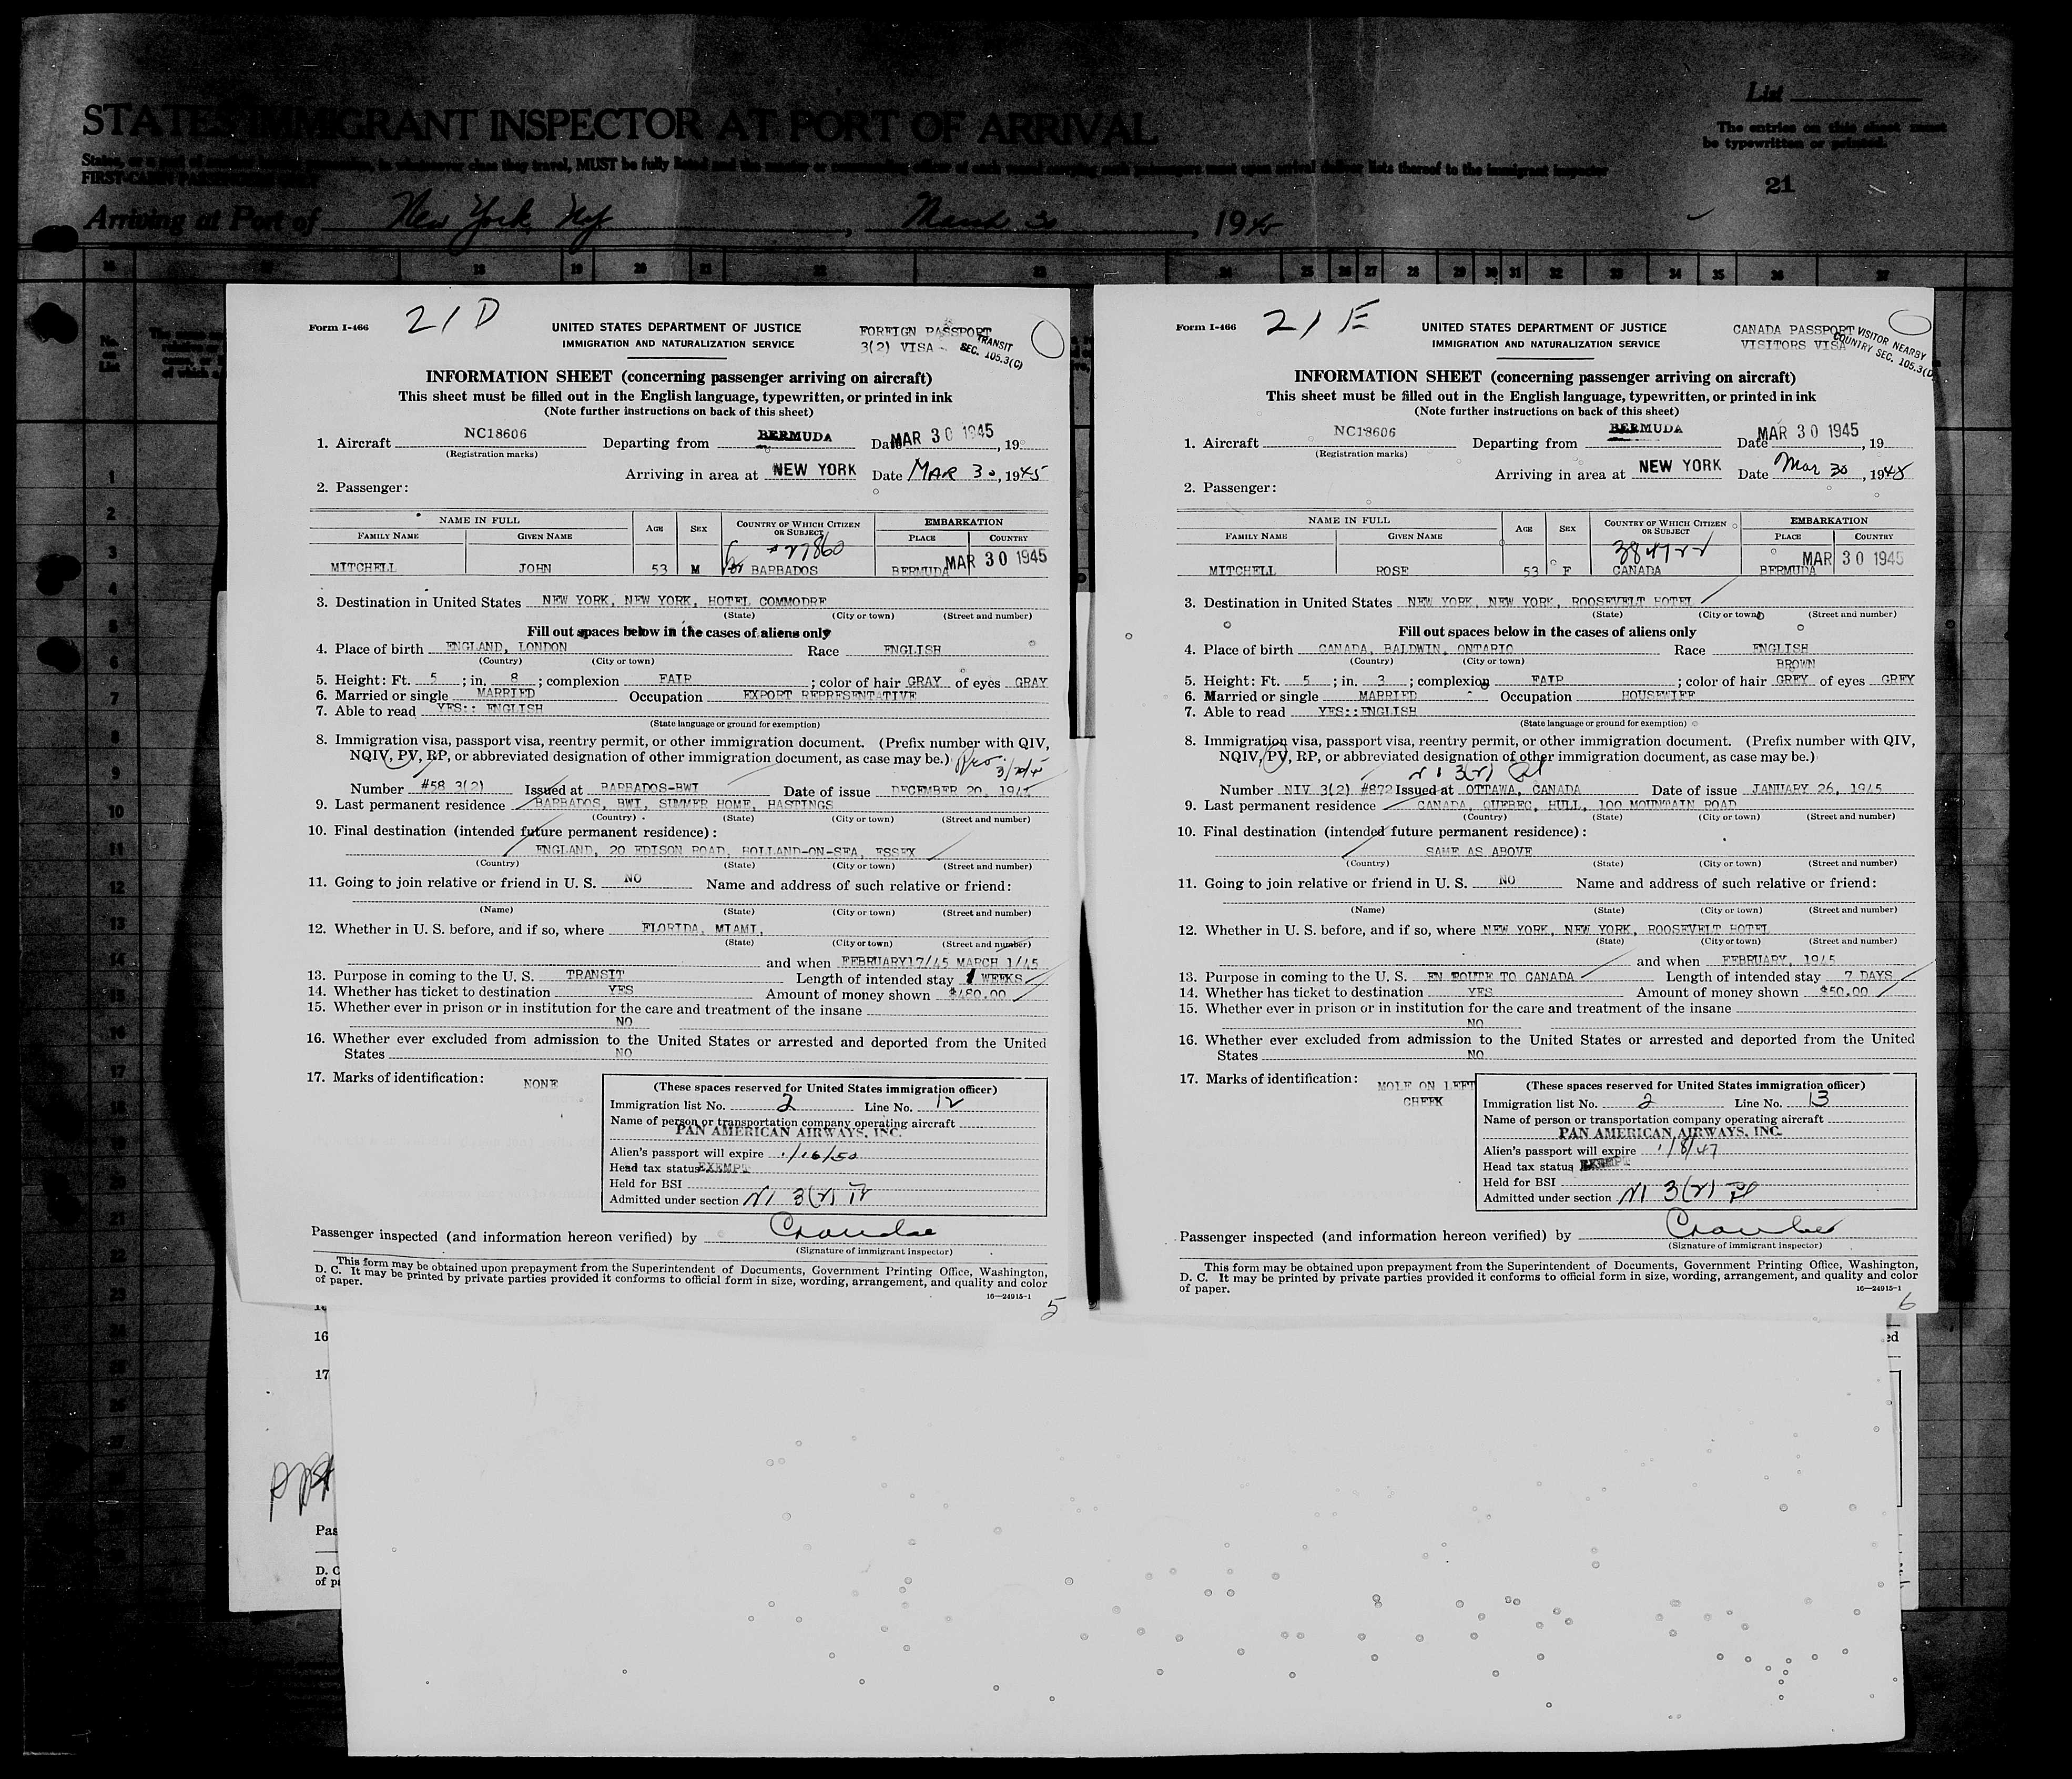 List
STATES IMMIGRANT INSPECTOR AT PORT OF ARRIVAL
The entries on this sheet must
be typewritten or printed.
21
Arriving at Port of New York, NY, March 30, 1945
21 D
Form I-466
UNITED STATES DEPARTMENT OF JUSTICE
IMMIGRATION AND NATURALIZATION SERVICE
FOREIGN PASSPORT
3(2) VISA
TRANSIT
SEC. 105.3(C)
INFORMATION SHEET (concerning passenger arriving on aircraft)
This sheet must be filled out in the English language, typewritten, or printed in ink
(Note further instructions on back of this sheet)
1. Aircraft NC18606 Departing from BERMUDA Date MAR 30 1945, 19
(Registration marks)
Arriving in area at NEW YORK Date MAR 30, 1945
2. Passenger:
NAME IN FULL AGE SEX COUNTRY OF WHICH CITIZEN OR SUBJECT EMBARKATION
FAMILY NAME GIVEN NAME PLACE COUNTRY
#27860
MITCHELL JOHN 53 M BARBADOS BERMUDA MAR 30 1945
3. Destination in United States NEW YORK, NEW YORK, HOTEL COMMODRE
(State) (City or town) (Street and number)
Fill out spaces below in the cases of aliens only
4. Place of birth ENGLAND, LONDON Race ENGLISH
(Country) (City or town)
5. Height: Ft. 5; in. 8; complexion FAIR; color of hair GRAY of eyes GRAY
6. Married or single MARRIED Occupation EXPORT REPRESENTATIVE
7. Able to read YES:: ENGLISH
(State language or ground for exemption)
8. Immigration visa, passport visa, reentry permit, or other immigration document. (Prefix number with QIV,
NQIV, PV, RP, or abbreviated designation of other immigration document, as case may be.)
Number #58 3(2) Issued at BARBADOS-BWI Date of issue DECEMBER 20, 194
9. Last permanent residence BARBADOS, BWI, SUMMER HOME, HASTINGS
(Country) (State) (City or town) (Street and number)
10. Final destination (intended future permanent residence):
ENGLAND, 20 EDISON ROAD, HOLLAND-ON-SEA, ESSEX
(Country) (State) (City or town) (Street and number)
11. Going to join relative or friend in U. S. NO Name and address of such relative or friend:
(Name) (State) (City or town) (Street and number)
12. Whether in U. S. before, and if so, where FLORIDA, MIAMI,
(State) (City or town) (Street and number)
and when FEBRUARY17/45 MARCH 1/45
13. Purpose in coming to the U. S. TRANSIT Length of intended stay 1 WEEKS
14. Whether has ticket to destination YES Amount of money shown $480.00
15. Whether ever in prison or in institution for the care and treatment of the insane
NO
16. Whether ever excluded from admission to the United States or arrested and deported from the United
States NO
17. Marks of identification: NONE
(These spaces reserved for United States immigration officer)
Immigration list No. 2 Line No. 12
Name of person or transportation company operating aircraft
PAN AMERICAN AIRWAYS, INC.
Alien's passport will expire 1/16/50
Head tax status EXEMPT
Held for BSI
Admitted under section NI 3(2) Tr
Passenger inspected (and information hereon verified) by
(Signature of immigrant inspector)
This form may be obtained upon prepayment from the Superintendent of Documents, Government Printing Office, Washington,
D. C. It may be printed by private parties provided it conforms to official form in size, wording, arrangement, and quality and color
of paper.
16—24915-1
5
21 E
Form I-466
UNITED STATES DEPARTMENT OF JUSTICE
IMMIGRATION AND NATURALIZATION SERVICE
CANADA PASSPORT
VISITORS VISA
VISITOR NEARBY
COUNTRY SEC. 105.3(D)
INFORMATION SHEET (concerning passenger arriving on aircraft)
This sheet must be filled out in the English language, typewritten, or printed in ink
(Note further instructions on back of this sheet)
1. Aircraft NC18606 Departing from BERMUDA Date MAR 30 1945, 19
(Registration marks)
Arriving in area at NEW YORK Date Mar 30, 1945
2. Passenger:
NAME IN FULL AGE SEX COUNTRY OF WHICH CITIZEN OR SUBJECT EMBARKATION
FAMILY NAME GIVEN NAME PLACE COUNTRY
384722
MITCHELL ROSE 53 F CANADA BERMUDA MAR 30 1945
3. Destination in United States NEW YORK, NEW YORK, ROOSEVELT HOTEL
(State) (City or town) (Street and number)
Fill out spaces below in the cases of aliens only
4. Place of birth CANADA, BALDWIN, ONTARIO Race ENGLISH
(Country) (City or town)
BROWN
5. Height: Ft. 5; in. 3; complexion FAIR; color of hair GREY of eyes GREY
6. Married or single MARRIED Occupation HOUSEWIFE
7. Able to read YES::ENGLISH
(State language or ground for exemption)
8. Immigration visa, passport visa, reentry permit, or other immigration document. (Prefix number with QIV,
NQIV, PV, RP, or abbreviated designation of other immigration document, as case may be.)
Number NIV 3(2) #872 Issued at OTTAWA, CANADA Date of issue JANUARY 26, 1945
9. Last permanent residence CANADA, QUEBEC, HULL, 100 MOUNTAIN ROAD
(Country) (State) (City or town) (Street and number)
10. Final destination (intended future permanent residence):
SAME AS ABOVE
(Country) (State) (City or town) (Street and number)
11. Going to join relative or friend in U. S. NO Name and address of such relative or friend:
(Name) (State) (City or town) (Street and number)
12. Whether in U. S. before, and if so, where NEW YORK, NEW YORK, ROOSEVELT HOTEL
(State) (City or town) (Street and number)
and when FEBRUARY, 1945
13. Purpose in coming to the U. S. EN ROUTE TO CANADA Length of intended stay 7 DAYS
14. Whether has ticket to destination YES Amount of money shown $50.00
15. Whether ever in prison or in institution for the care and treatment of the insane
NO
16. Whether ever excluded from admission to the United States or arrested and deported from the United
States NO
17. Marks of identification: MOLE ON LEFT
CHEEK
(These spaces reserved for United States immigration officer)
Immigration list No. 2 Line No. 13
Name of person or transportation company operating aircraft
PAN AMERICAN AIRWAYS, INC.
Alien's passport will expire 1/8/47
Head tax status EXEMPT
Held for BSI
Admitted under section NI 3(2)
Passenger inspected (and information hereon verified) by
(Signature of immigrant inspector)
This form may be obtained upon prepayment from the Superintendent of Documents, Government Printing Office, Washington,
D. C. It may be printed by private parties provided it conforms to official form in size, wording, arrangement, and quality and color
of paper.
16—24915-1
6
16
17